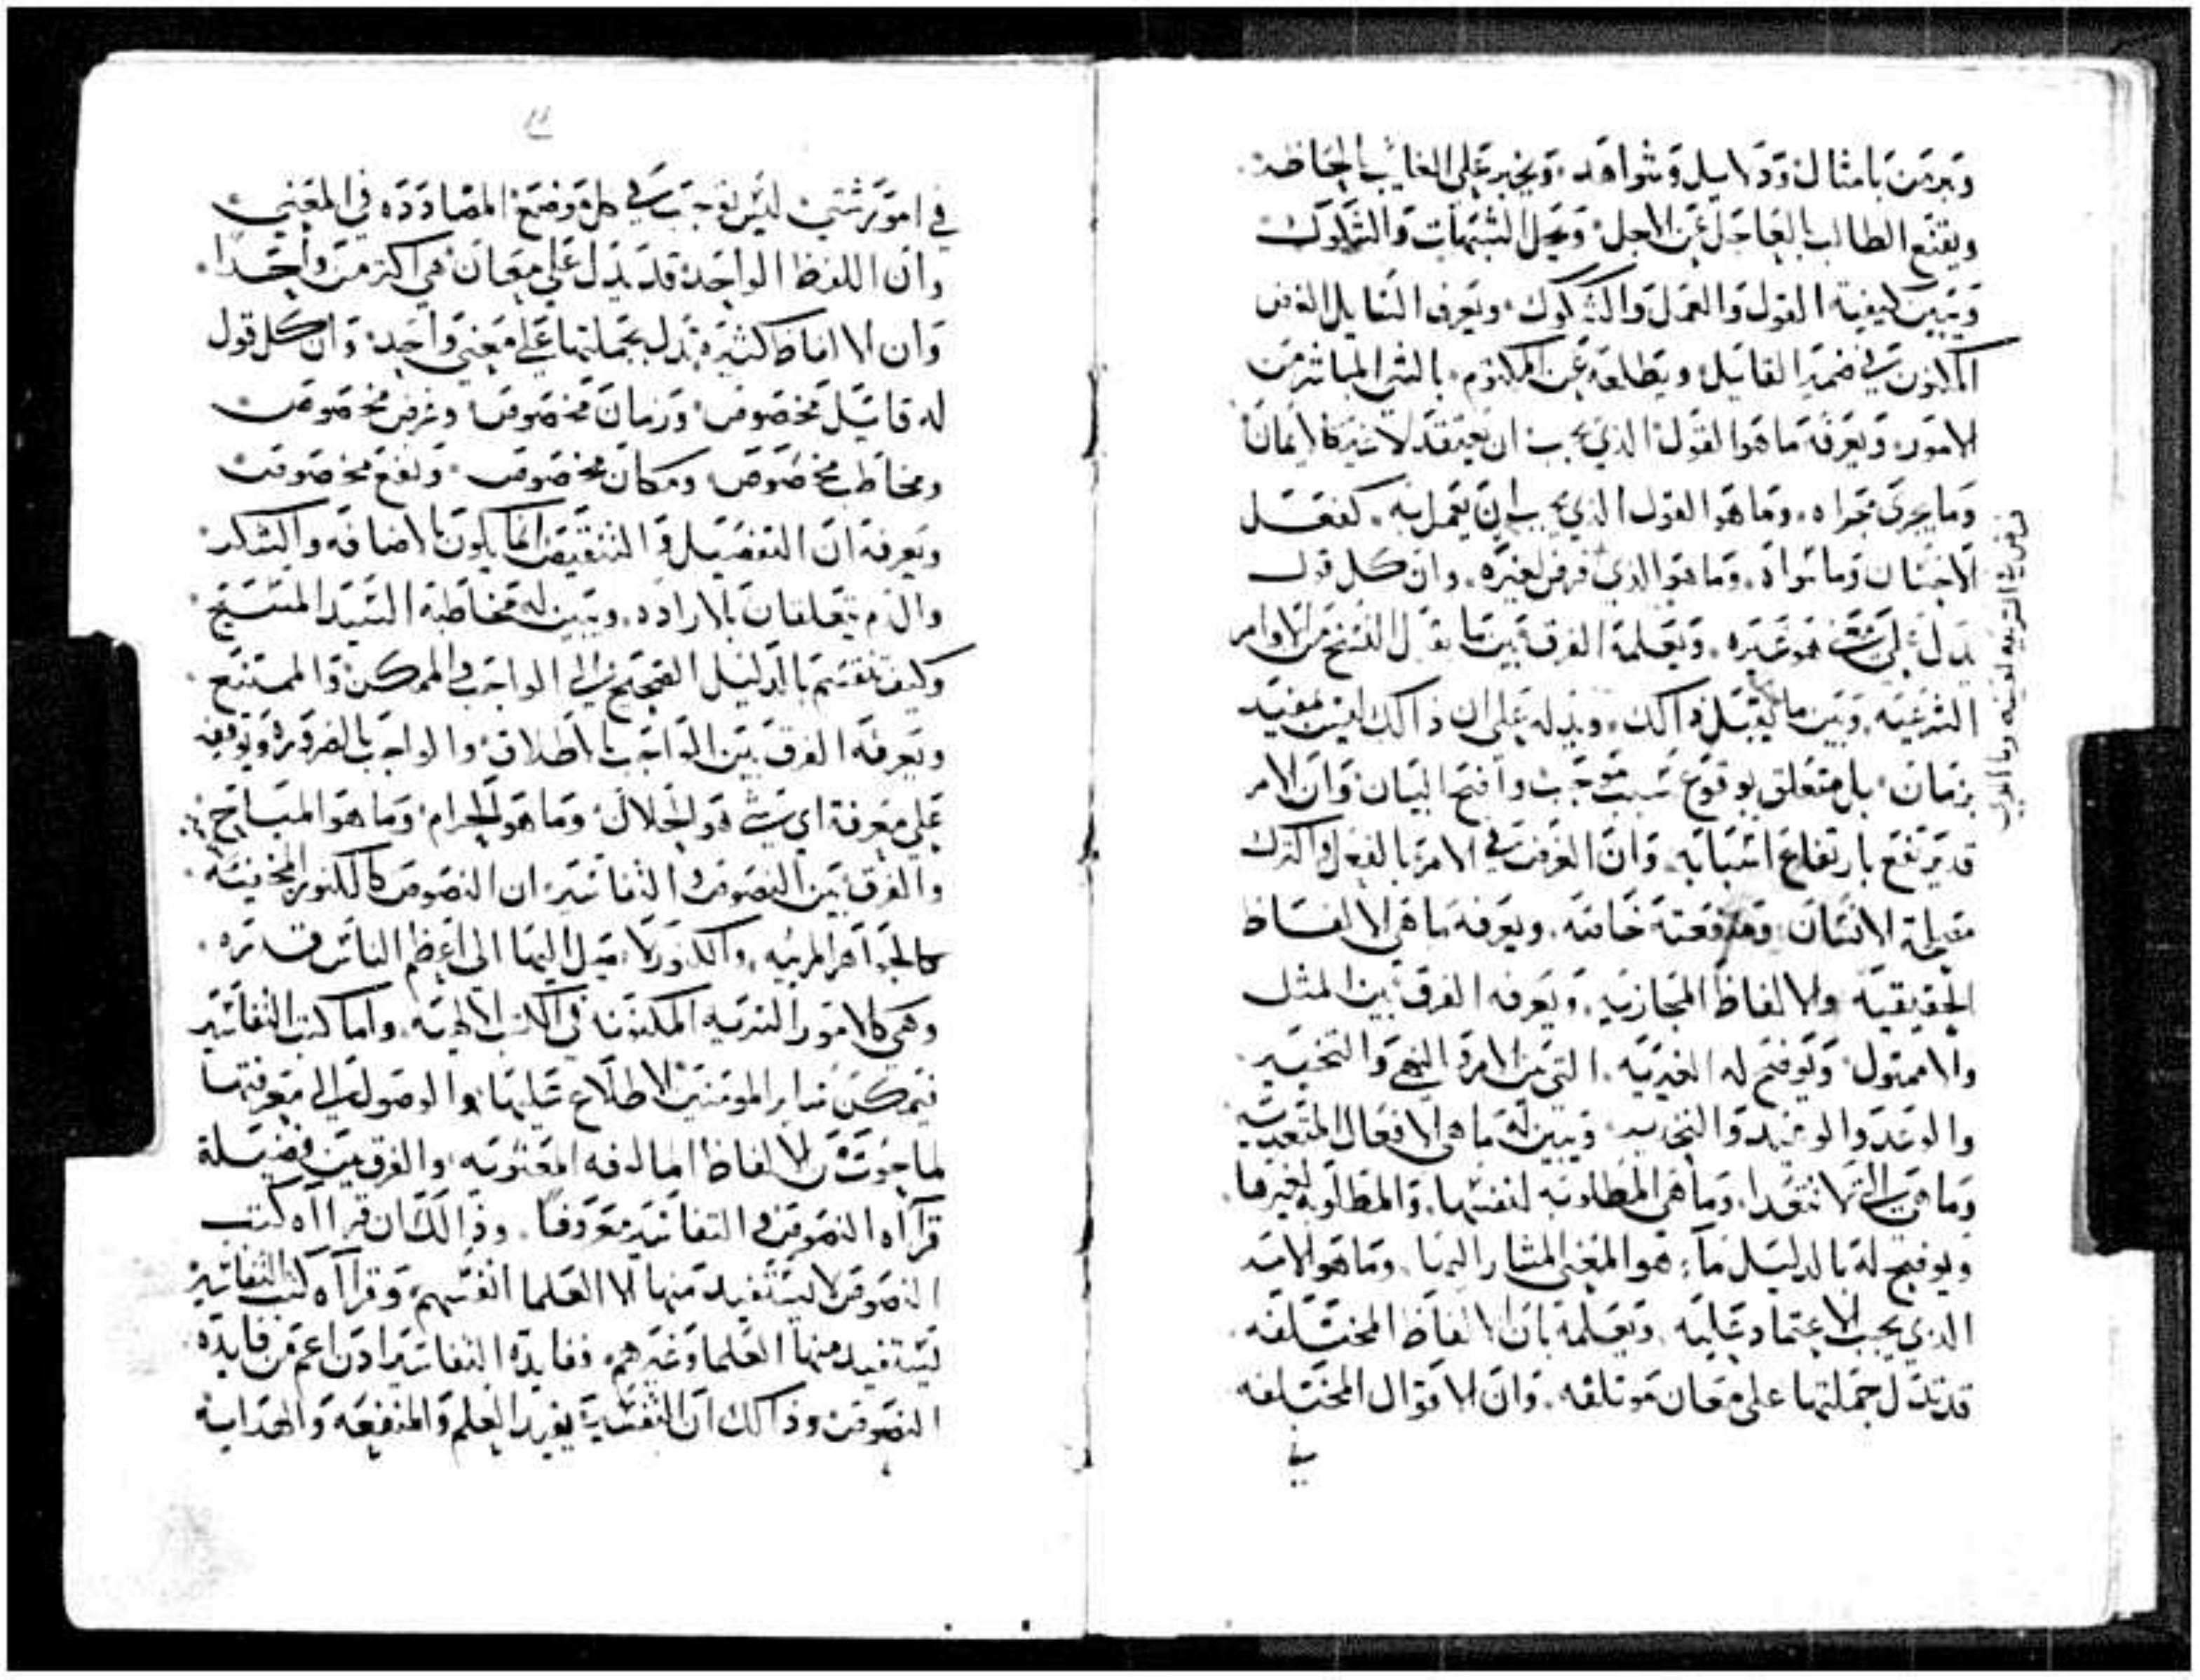 ويرمز بامثال ودلايل وشواهد. ويخبر على الغايب بالحاضر.
ويقنع الطالب بالعاجل عن الاجل. ويحل الشبهات والشكوك
ويبين كيفية القول والعمل والشكوك. ويعرف السايل الغرض
المكنون في ضمير القايل. ويطلعه عن المكتوم بالشي المباشر من
الامور. ويعرفه ما هو القول الذي يجب ان يعتقد لاغير كالايمان
وما يجري مجراه. وما هو القول الذي يجب ان يعمل به. كفعل
الاحسان وما سواه. وما هو الذي فرض لغيره. وان كل قول
يدل على شي فهو غيره. ويعلمه الفرق بين ما يقبل النسخ من الاوامر
الشرعيه. وبين ما لا يقبل ذالك. ويدله على ان ذالك ليس بمقيد
بزمان. بل متعلق بوقوع سبب موجب واضح البيان وان الامر
قد يرتفع بارتفاع اسبابه. وان الغرض في الامر بالفعل والترك
الانسان ومنفعته خاصه. ويعرفه ما هي الالفاظ
الحقيقيه والالفاظ المجازيه. ويعرفه الفرق بين المثل
والاممثول. ويوضح له الغيريه. التي بين الامر والنهي والتخيير.
والوعد والوعيد والتحذير. ويبين له ما هي الافعال المتعديه
وما هي التي لا تتعدا. وما هي المطلوبه لنفسها. والمطلوبه لغيرها.
ويوضح له بالدليل ما هو المعنى المشار اليها. وما هو الامر
الذي يجب الاعتماد عليه. ويعلمه بان الالفاظ المختلفه.
قد تدل جملتها على معان موتلفه. وان الاقوال المختلفه
في
فرض في الشريعه لعينه وما
١١
في امور شتى ليس توجب في كل موضع المضادده في المعنى
وان اللفظ الواحد قد يدل على معان هي اكثر من واحدا.
وان الالفاظ كثيره تدل بجملتها على معنى واحد. وان كل قول
له قايل مخصوص وزمان مخصوص وغرض مخصوص
ومخاطب مخصوص ومكان مخصوص. ونفع مخصوص
ويعرفه ان التفضيل والتنقيص انما يكون بالاضافه والشكر
والذم يتعلقان بالاراده. ويبين له مخاطبة السيد المسيح.
وكيف تنقسم بالدليل الصحيح الى الواجب والممكن والممتنع.
ويعرفه الفرق بين الواجب بالاطلاق والواجب بالضروره ويوقفه
على معرفة اي شي هو الحلال وما هو الحرام وما هو المباح
والفرق بين النصوص والتفاسير. ان النصوص كالكنوز المخفيه.
كالجواهر المربيه. والكنوز لا ميل اليها الى اعظم الناس قدره.
وهي كالامور السريه المكنونه في الكتب الالهيه. واما كتب التفاسير
فيمكن ساير المومنين الاطلاع عليها والوصول الى معرفتها
لما حوت من الالفاظ المالوفه المعنويه والفرق بين فضيلة
قرااه النصوص والتفاسير معروفا. وذالك ان قرااه كتب
النصوص لا يستفيد منها الا العلما انفسهم. وقرااه كتب التفاسير
يستفيد منها العلما وغيرهم. ففايدة التفاسير اذن اعم من فايدة
النصوص وذالك ان التفسير يفيد العلم والمنفعه والهدايه